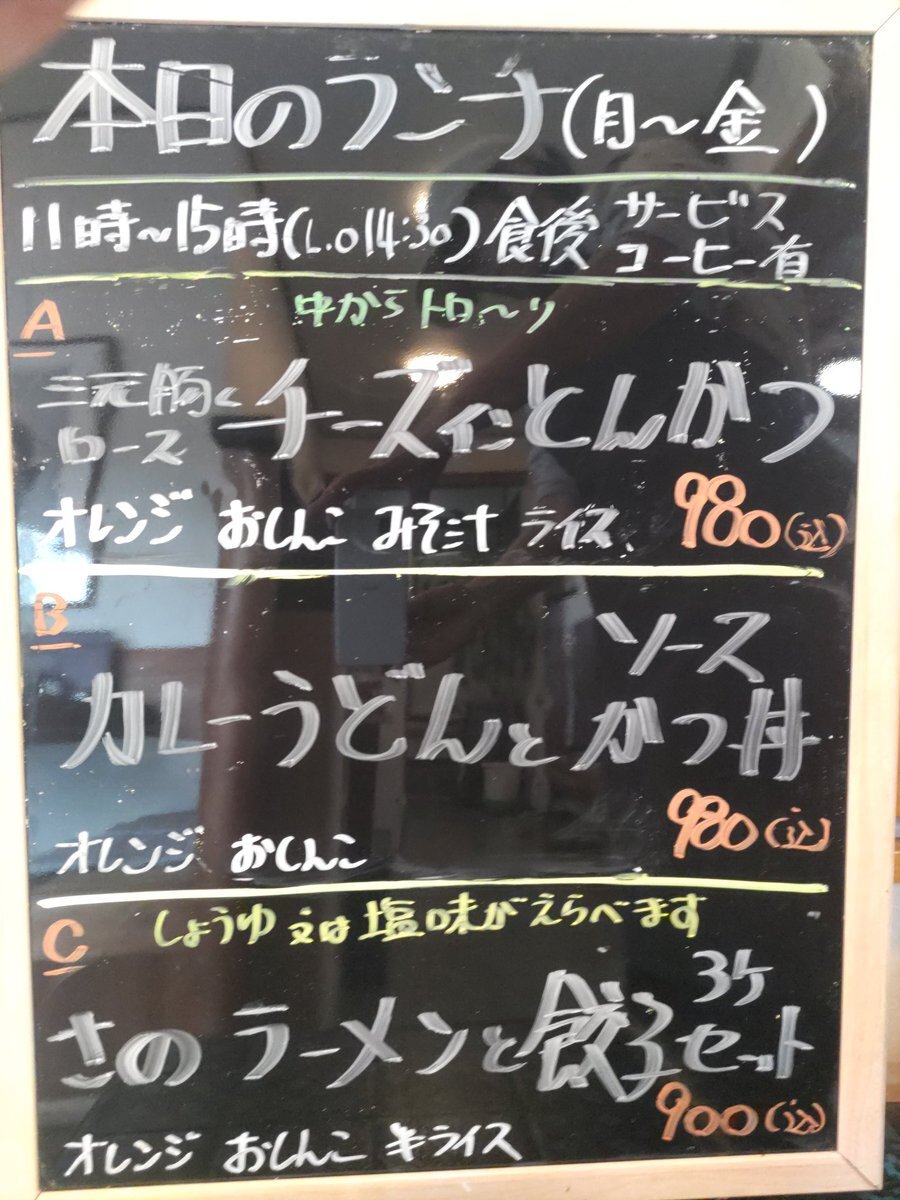 本日のランチ(月〜金)
11時〜15時(L.O 14:30) 食後 サービス
コーヒー有
A
中からトロ〜リ
三元豚
ロース
チーズインとんかつ
オレンジ おしんこ みそ汁 ライス 980(込)
B
ソース
カレーうどんと かつ丼
980(込)
オレンジ おしんこ
C
しょうゆ 又は 塩味がえらべます
3ケ
さのラーメンと餃子セット
900(込)
オレンジ おしんこ 半ライス